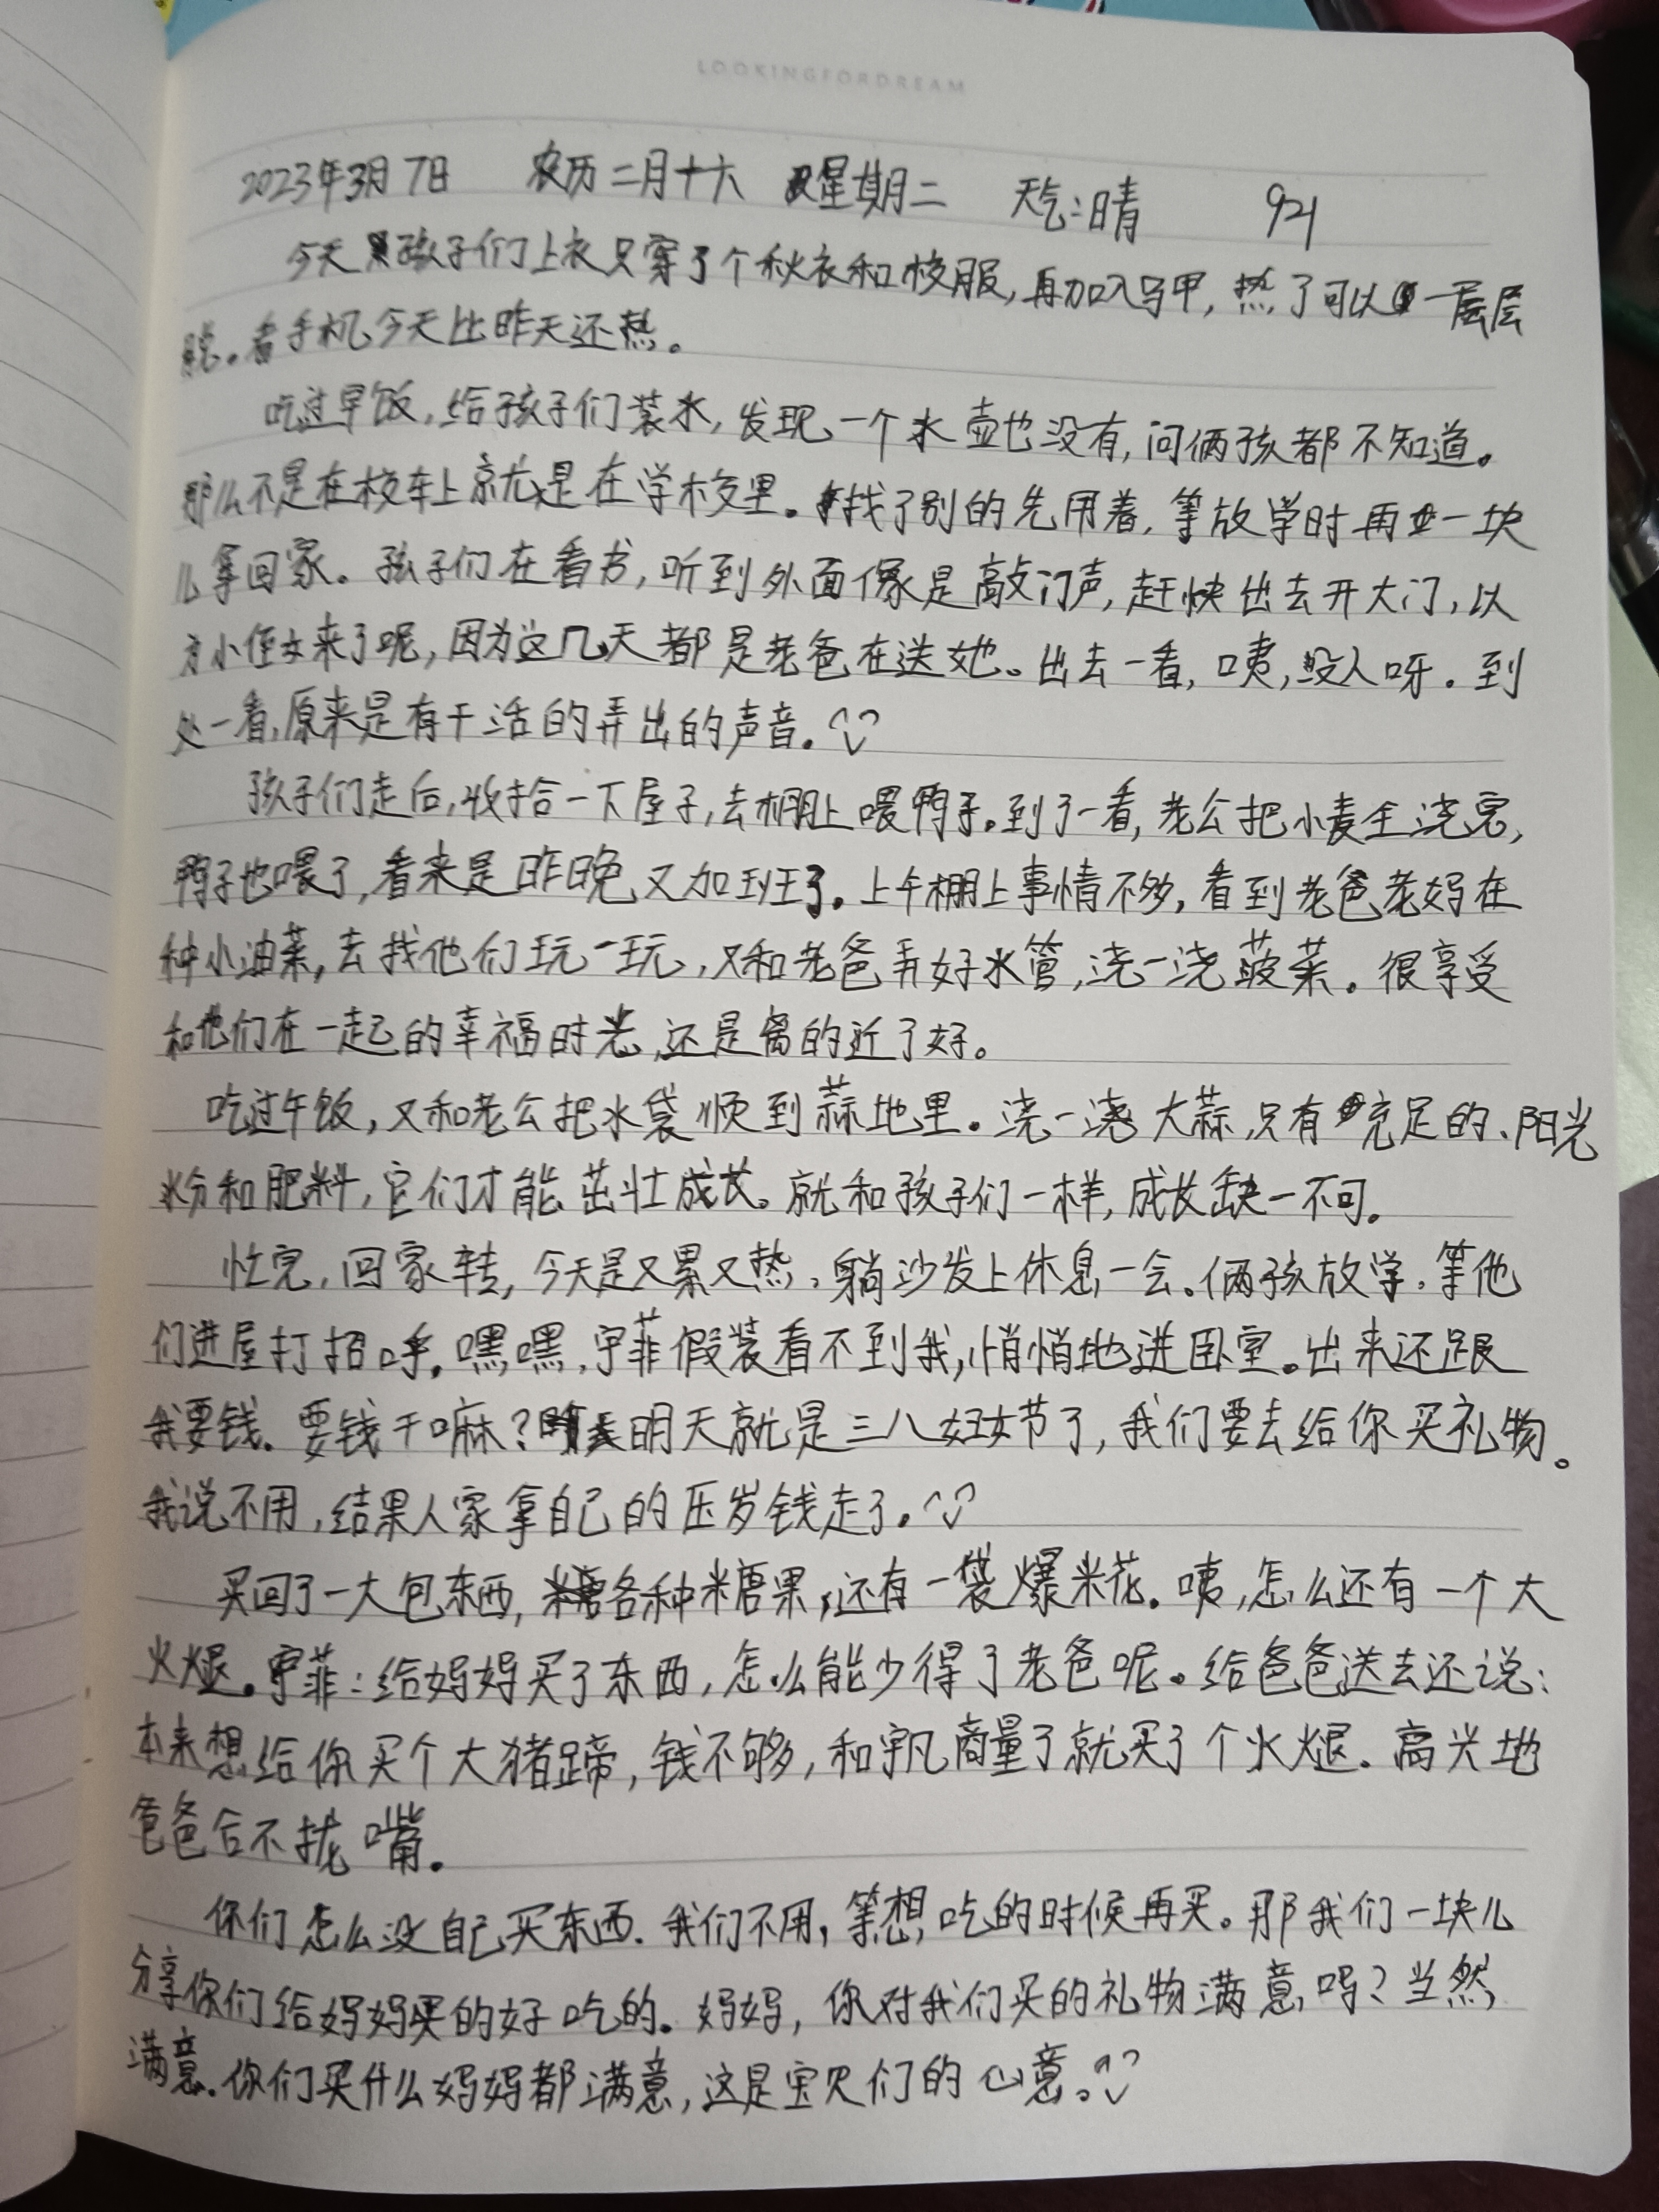 LOOKINGFORDREAM
2023年3月7日 农历二月十六 星期二 天气:晴 921
今天孩子们上衣只穿了个秋衣和校服,再加入马甲,热了可以一层层
脱。看手机今天比昨天还热。
吃过早饭,给孩子们装水,发现一个水壶也没有,问俩孩都不知道。
那么不是在校车上就是在学校里。找了别的先用着,等放学时再一块
儿拿回家。孩子们在看书,听到外面像是敲门声,赶快出去开大门,以
为小侄女来了呢,因为这几天都是老爸在送她。出去一看,咦,没人呀。到
处一看,原来是有干活的弄出的声音。
孩子们走后,收拾一下屋子,去棚上喂鸭子。到了一看,老公把小麦全浇完,
鸭子也喂了,看来是昨晚又加班了。上午棚上事情不多,看到老爸老妈在
种小油菜,去找他们玩一玩,又和老爸弄好水管,浇一浇菠菜。很享受
和他们在一起的幸福时光,还是离的近了好。
吃过午饭,又和老公把水袋顺到蒜地里。浇一浇大蒜,只有充足的、阳光
水分和肥料,它们才能茁壮成长。就和孩子们一样,成长缺一不可。
忙完,回家转,今天是又累又热,躺沙发上休息一会。俩孩放学,等他
们进屋打招呼。嘿嘿,宇菲假装看不到我,悄悄地进卧室。出来还跟
我要钱。要钱干嘛?明天就是三八妇女节了,我们要去给你买礼物。
我说不用,结果人家拿自己的压岁钱走了。
买回了一大包东西,各种糖果,还有一袋爆米花。咦,怎么还有一个大
火煺。宇菲:给妈妈买了东西,怎么能少得了老爸呢。给爸爸送去还说:
本来想给你买个大猪蹄,钱不够,和宇凡商量了就买了个火煺。高兴地
爸爸合不拢嘴。
你们怎么没自己买东西.我们不用,等想吃的时候再买。那我们一块儿
分享你们给妈妈买的好吃的。妈妈,你对我们买的礼物满意吗?当然
满意.你们买什么妈妈都满意,这是宝贝们的心意。